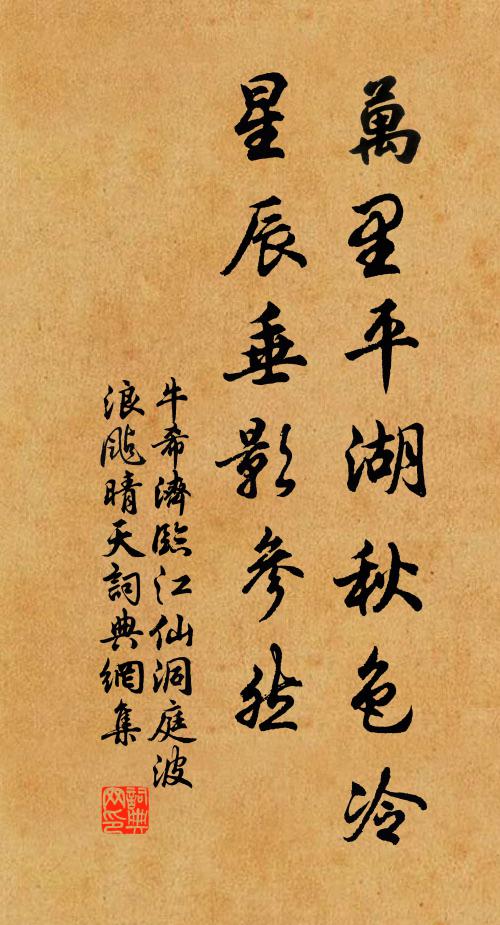 萬里平湖秋色冷
星辰垂影參然
牛希濟臨江仙洞庭波
浪颭晴天詞典網集